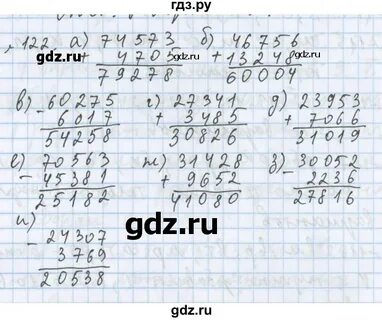 гдз.ру
122. а) 74573 б) 46756
+ 4705 + 13248
79278 60004
в) 60275 г) 27341 д) 23953
- 6017 + 3485 + 7066
54258 30826 31019
е) 70563 ж) 31428 з) 30052
- 45381 + 9652 - 2236
25182 41080 27816
и)
- 24307
3769
20538
gdz.ru
gdz.ru
gdz.ru
gdz.ru